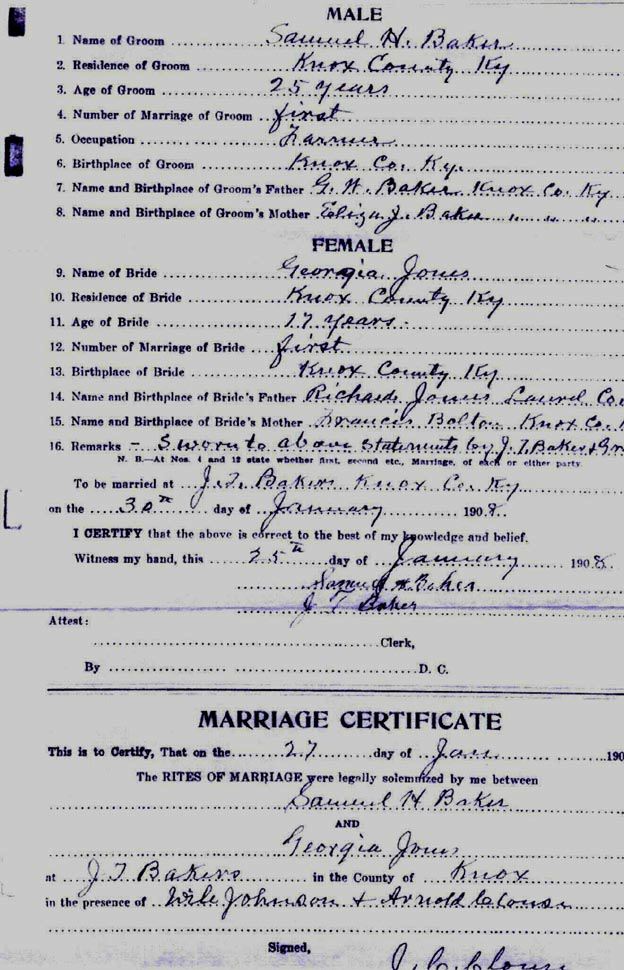 MALE
1. Name of Groom Samuel H. Baker
2. Residence of Groom Knox County Ky
3. Age of Groom 25 years
4. Number of Marriage of Groom first
5. Occupation Farmer
6. Birthplace of Groom Knox Co. Ky.
7. Name and Birthplace of Groom's Father G. W. Baker Knox Co. Ky
8. Name and Birthplace of Groom's Mother Eliza J. Baker " " "
FEMALE
9. Name of Bride Georgia Jones
10. Residence of Bride Knox County Ky
11. Age of Bride 17 years.
12. Number of Marriage of Bride first
13. Birthplace of Bride Knox County Ky
14. Name and Birthplace of Bride's Father Richard Jones Laurel Co.
15. Name and Birthplace of Bride's Mother Francis Bolton Knox Co.
16. Remarks - Sworn to above statements by J. T. Baker &
N. B.—At Nos. 4 and 12 state whether first, second etc., Marriage, of each or either party.
To be married at J. T. Bakers Knox Co. Ky
on the 30th day of January 1908.
I CERTIFY that the above is correct to the best of my knowledge and belief.
Witness my hand, this 25th day of January 1908
Samuel H Baker
J T Baker
Attest:
Clerk,
By D. C.
MARRIAGE CERTIFICATE
This is to Certify, That on the 27 day of Jan 190
The RITES OF MARRIAGE were legally solemnized by me between
Samuel H Baker
AND
Georgia Jones
at J T Bakers in the County of Knox
in the presence of Johnson & Arnold
Signed,